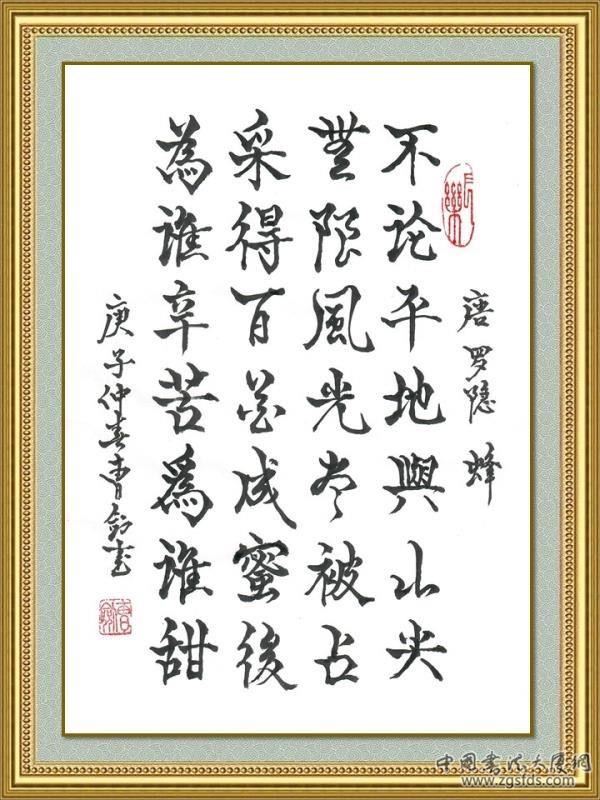 唐罗隐 蜂
不论平地與山尖
無限風光尽被占
采得百花成蜜後
為谁辛苦為谁甜
庚子仲春曹剑书
中国书法大厦網
www.zgsfds.com